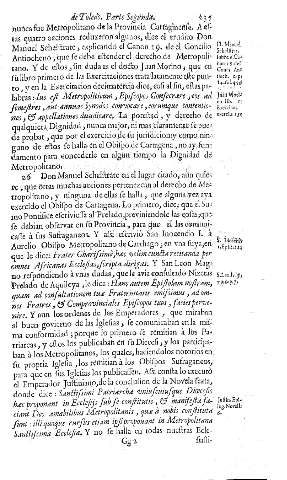 de Toledo. Parte Segunda. 635
nunca fue Metropolitano de la Provincia Cartaginense. A es-
tas quatro acciones reduzeron algunos, dize el erudito Don
Manuel Schelstrate, explicando el Canon 19. de el Concilio
Antiocheno, que se debe estender el derecho de Metropoli-
tano. Y de ellos, sin duda es el docto Juan Morino, que en
su libro primero de las Exercitaciones trata latamente este pun-
to, y en la Exercitacion dezimatercia dize, casi al fin, estas pa-
labras: Ius est Metropolitani, Episcopos Consecrare, eos ad
Synodos convocare,
& appellationes diiudicare. La potestad, y derecho de
qualquiera Dignidad, nunca mejor, ni mas claramente se pue-
de probar, que por el exercicio de su jurisdiccion: y como nin-
guno de estos se halla en el Obispo de Cartagena, no ay fun-
damento para concederle en algun tiempo la Dignidad de
Metropolitano.
26 Don Manuel Schelstrate en el lugar citado, aña-
de, que otras muchas acciones pertenecen al derecho de Me-
tropolitano, y ninguna de ellas se halla, que alguna vez aya
exercido el Obispo de Cartagena. Lo primero, dize, que el Su-
mo Pontifice escriviesse al Prelado, previniendole las cosas, que
se debian observar en su Provincia, para que el las comuni-
casse à sus Sufraganeos. Y assi escrivió San Inocencio I. à
Aurelio Obispo Metropolitano de Carthago, en una suya, en
que le dize: Frater Charissime, has velim cunctas recitanda per
omnes Africanas Ecclesias, scripta dirigas. Y San Leon Mag-
no respondiendo à unas dudas, que le avia consultado Nicetas
Prelado de Aquileya, le dize: Hanc autem Epistolam nostram,
quam ad consultationem tuae Fraternitatis emisimus, ad om-
nes Fratres, & Comprovinciales Episcopos tuos, facies perve-
nire. Y aun los ordenes de los Emperadores, que miraban
al buen govierno de las Iglesias, se comunicaban en la mis-
ma conformidad; porque lo primero se remitian à los Pa-
triarcas, y ellos los publicaban en su Diocesi, y los participa-
ban à los Metropolitanos, los quales, haziendolos notorios en
su propria Iglesia, los remitian à los Obispos Sufraganeos,
para que en sus Iglesias los publicassen. Assi consta lo executó
el Emperador Justiniano, de la conclusion de la Novela sexta,
donde dize: Sanctissimi Patriarchae uniuscuiusque Dioecesis
haec proponant in Ecclesijs sub se constitutis, & manifesta fa-
ciant Deo amabilibus Metropolitanis, quae à nobis constituta
sunt: illi quoque rursus etiam ipsi proponant in Metropolitana
Sanctissima Ecclesia. Y no se halla en todas nuestras Ecle-
Gg 2 siasti-
D. Manuel